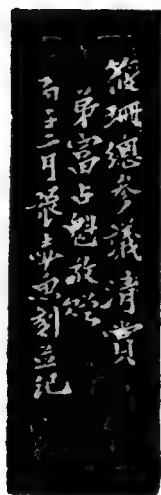 筱珊總參議清賞
弟富占魁敬贈
丙子二月張壽魚刻並記